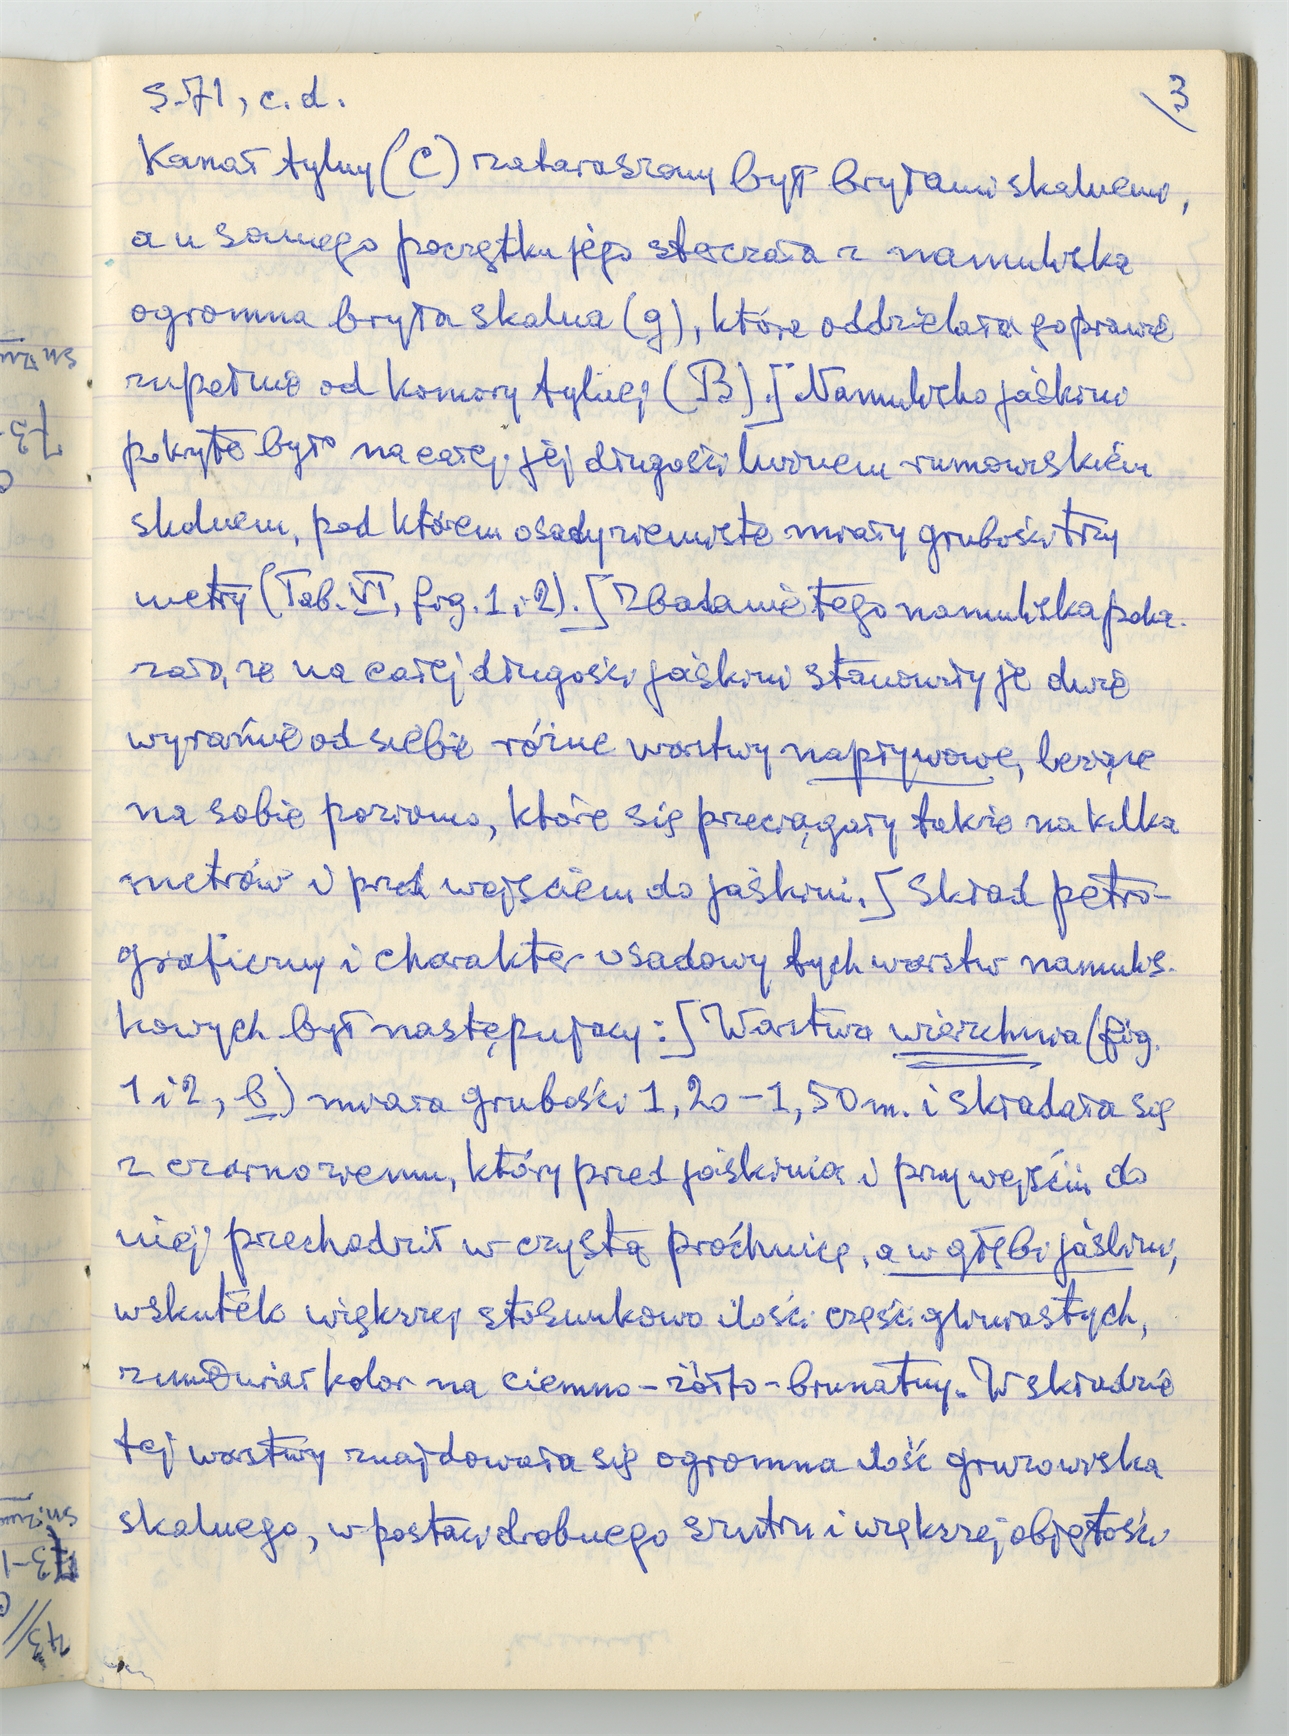 3
s. 71, c. d.
Kanał tylny (C) zataraszony był bryłami skalnemi,
a u samego początku jego sterczała z namuliska
ogromna bryła skalna (g), która oddzielała go prawie
zupełnie od komory tylnej (B).] Namulisko jaskini
pokryte było na całej jéj długości luźnem rumowiskiem
skalnem, pod którem osady ziemiste miały grubości trzy
metry (Tab. VI, fig. 1 i 2).] Zbadanie tego namuliska poka-
zało, że na całej długości jaskini stanowiły je dwie
wyraźnie od siebie różne warstwy napływowe, leżące
na sobie poziomo, które się przeciągały także na kilka
metrów i przed wejściem do jaskini.] Skład petro-
graficzny i charakter osadowy tych warstw namulis-
kowych był następujący:] Warstwa wierzchnia (fig.
1 i 2, b) miała grubości 1,20 - 1,50 m. i składała się
z czarnoziemu, który przed jaskinią i przy wejściu do
niej przechodził w czystą próchnicę, a w głębi jaskini,
wskutek większej stosunkowo ilości części gliniastych,
zmieniał kolor na ciemno-żółto-brunatny. W składzie
tej warstwy znajdowała się ogromna ilość gruzowiska
skalnego, w postaci drobnego szutru i większej objętości